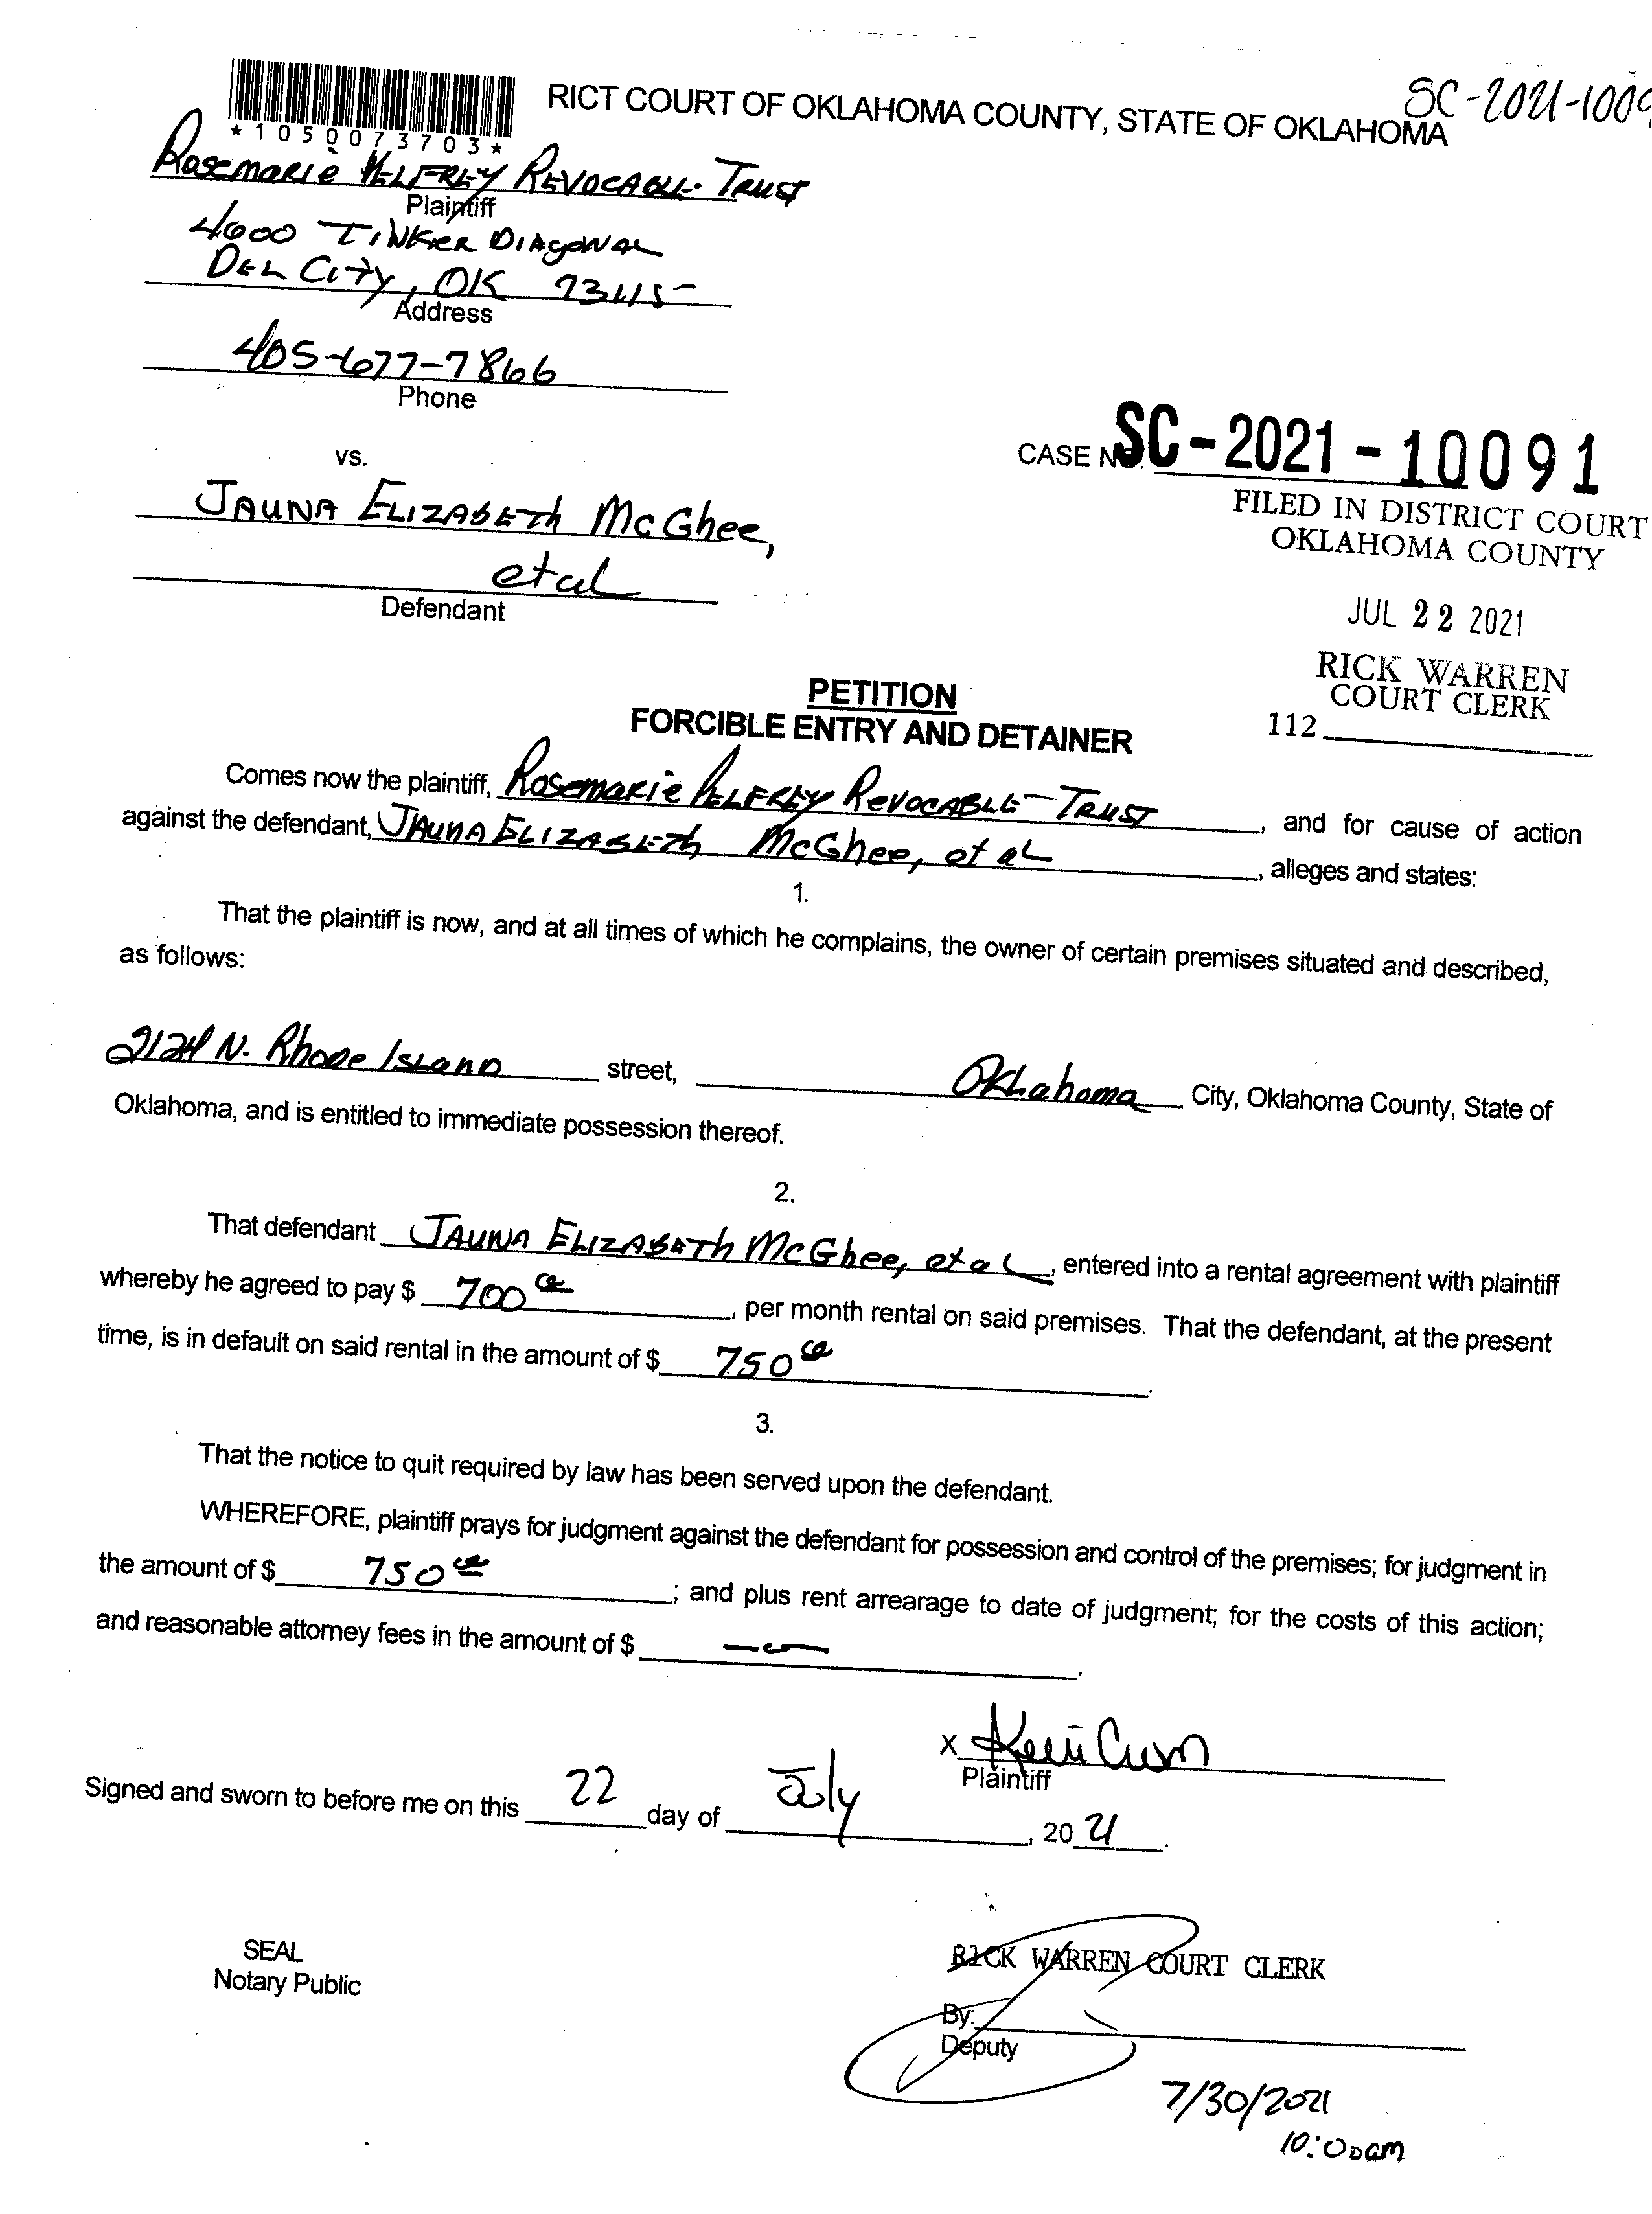 SC-2021-1009
RICT COURT OF OKLAHOMA COUNTY, STATE OF OKLAHOMA
*1050073703*
Rosemarie Pelfrey Revocable Trust
Plaintiff
4600 Tinker Diagonal
Del City, OK 73115
Address
405-677-7866
Phone
vs.
CASE NO. SC-2021-10091
FILED IN DISTRICT COURT
OKLAHOMA COUNTY
Jauna Elizabeth McGhee,
et al
Defendant
JUL 22 2021
RICK WARREN
COURT CLERK
112
PETITION
FORCIBLE ENTRY AND DETAINER
Comes now the plaintiff, Rosemarie Pelfrey Revocable Trust, and for cause of action
against the defendant, Jauna Elizabeth McGhee, et al, alleges and states:
1.
That the plaintiff is now, and at all times of which he complains, the owner of certain premises situated and described,
as follows:
2124 N. Rhode Island street, Oklahoma City, Oklahoma County, State of
Oklahoma, and is entitled to immediate possession thereof.
2.
That defendant Jauna Elizabeth McGhee, et al, entered into a rental agreement with plaintiff
whereby he agreed to pay $ 700, per month rental on said premises. That the defendant, at the present
time, is in default on said rental in the amount of $ 750.
3.
That the notice to quit required by law has been served upon the defendant.
WHEREFORE, plaintiff prays for judgment against the defendant for possession and control of the premises; for judgment in
the amount of $ 750; and plus rent arrearage to date of judgment; for the costs of this action;
and reasonable attorney fees in the amount of $
X
Plaintiff
Signed and sworn to before me on this 22 day of July, 2021.
SEAL
Notary Public
RICK WARREN COURT CLERK
By:
Deputy
7/30/2021
10:00am